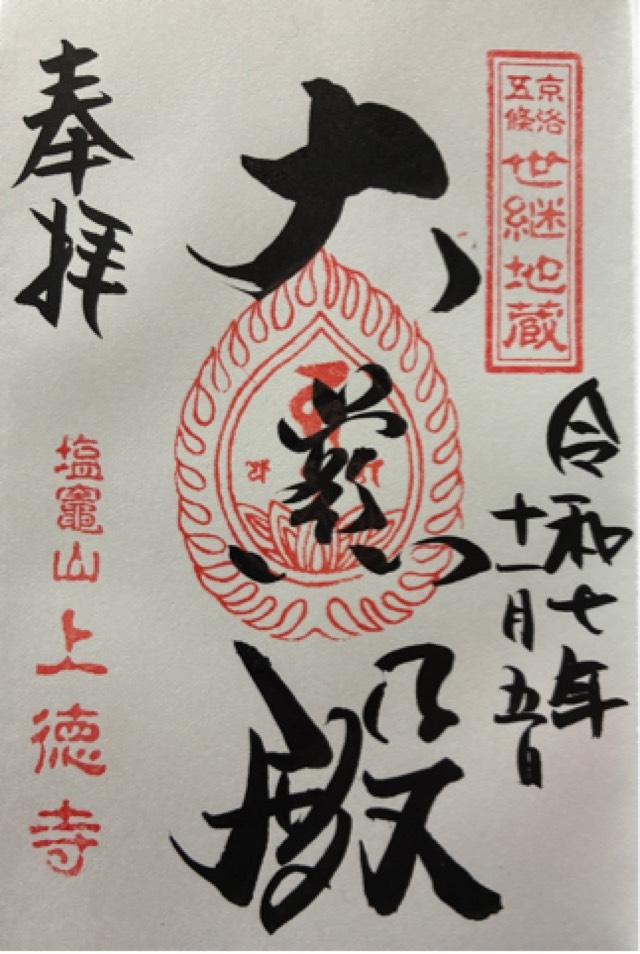 京洛
五條
世継地蔵
令和七年
十一月五日
大悲殿
奉拝
塩竈山上徳寺